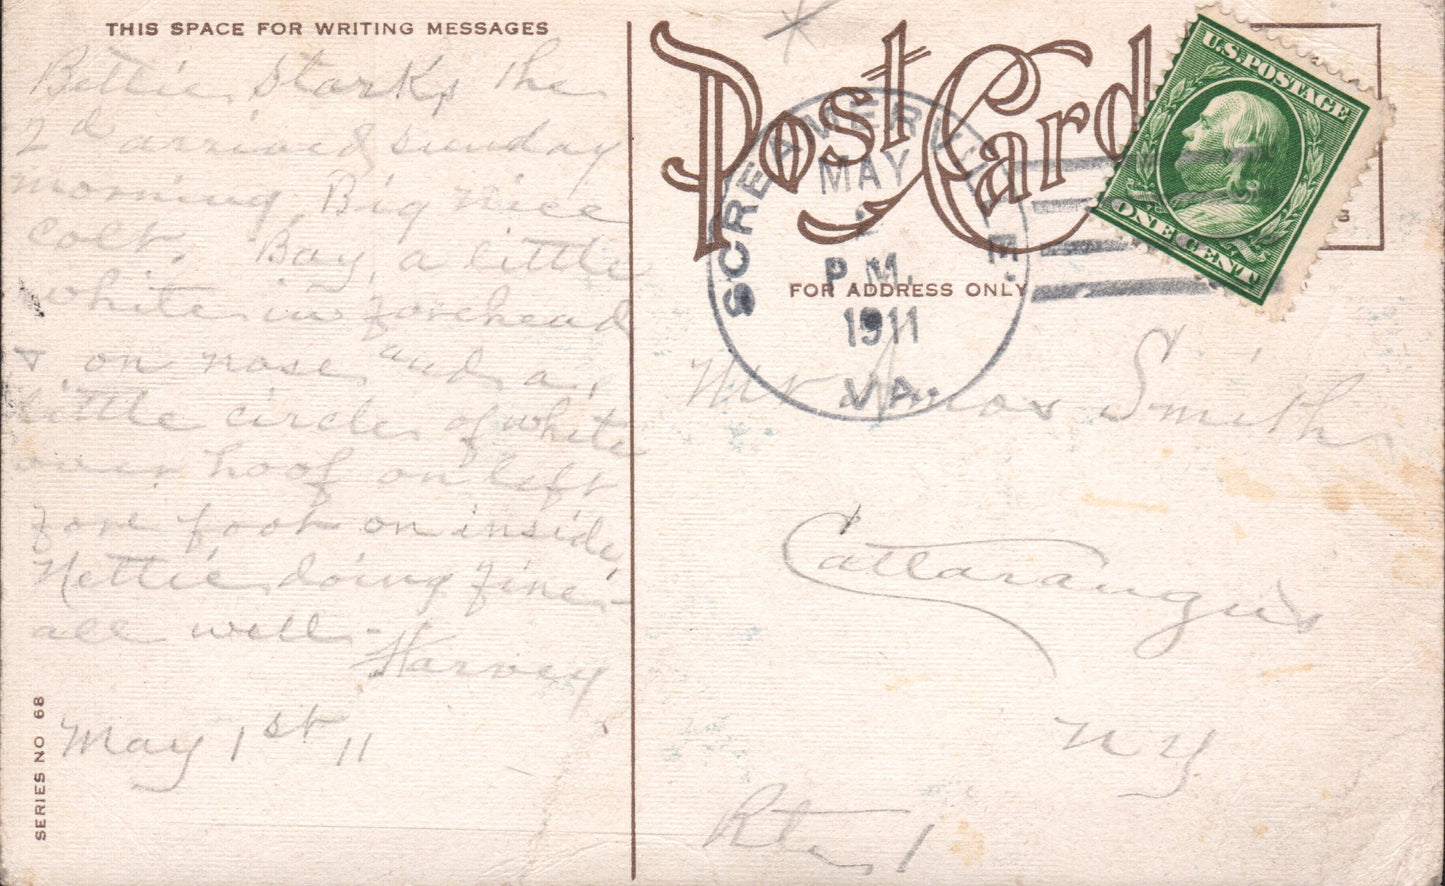 THIS SPACE FOR WRITING MESSAGES
Bettie Stark, the
2d arrived Sunday
morning, Big nice
colt. Bay, a little
white in forehead
& on nose and a
little circle of white
over hoof on left
fore foot on inside,
Nettie doing fine -
all well - 
Harvey
May 1st 11
SERIES NO 68
Post Card
FOR ADDRESS ONLY
SCREAMERVILLE
MAY
2
P.M.
1911
VA.
U.S. POSTAGE
ONE CENT
Mr Amos Smith
Cattaraugus
N Y
Rte 1